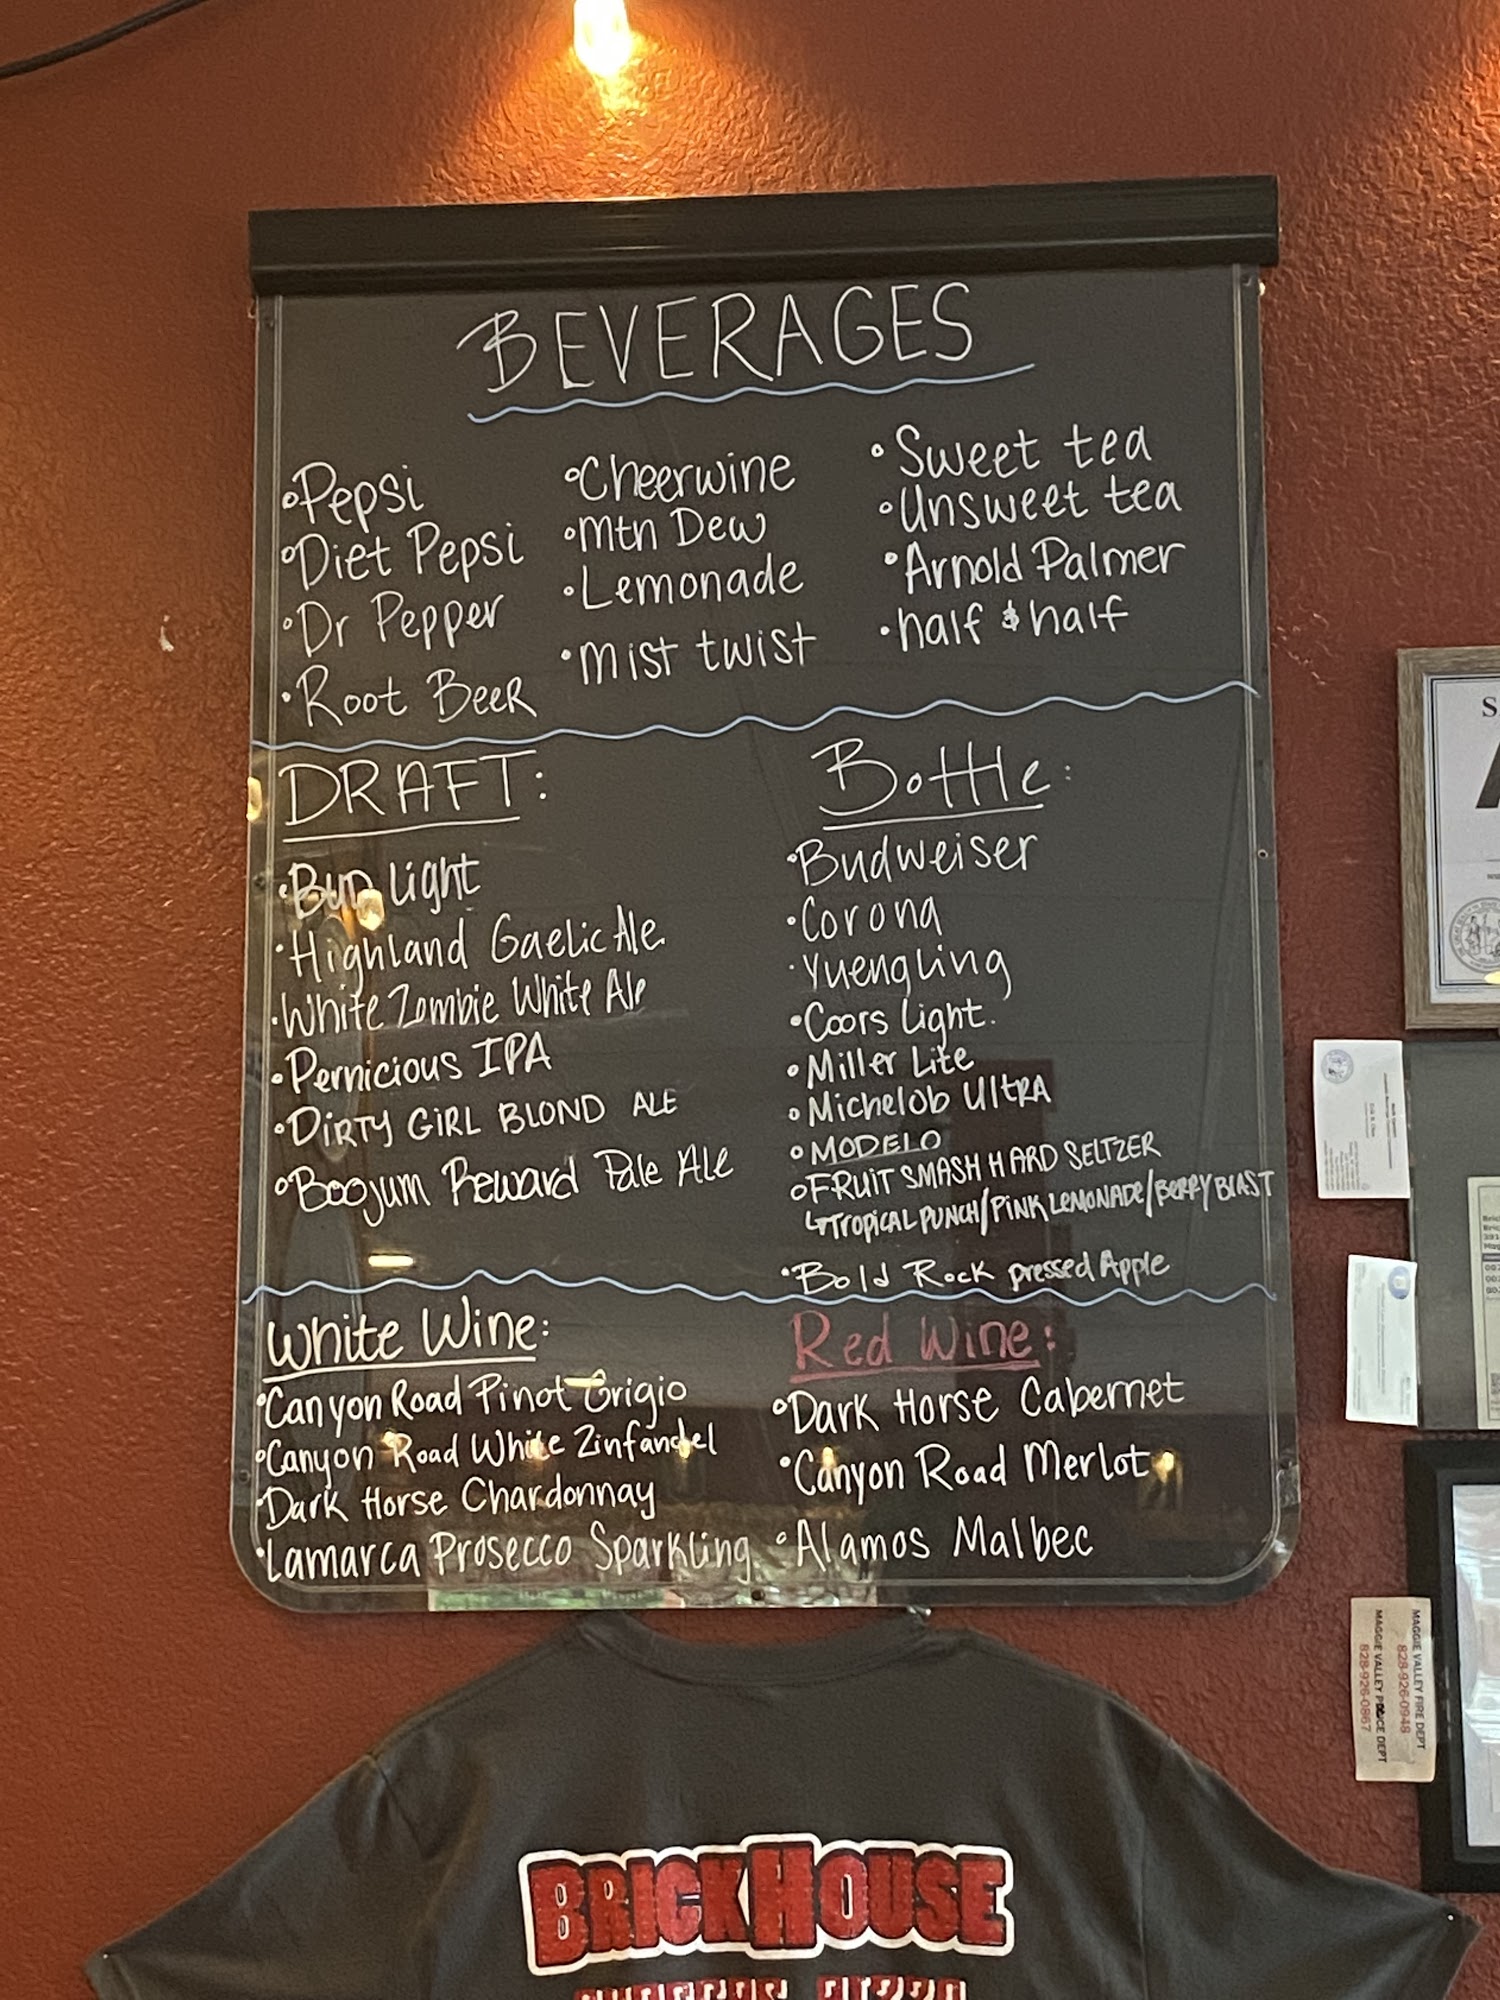 BEVERAGES
•Pepsi
•Diet Pepsi
•Dr Pepper
•Root Beer
•Cheerwine
•Mtn Dew
•Lemonade
•mist twist
•Sweet tea
•Unsweet tea
•Arnold Palmer
•half & half
DRAFT:
•Bud Light
•Highland Gaelic Ale
•White Zombie White Ale
•Pernicious IPA
•DIRTY GIRL BLOND ALE
•Boojum Reward Pale Ale
Bottle:
•Budweiser
•Corona
•Yuengling
•Coors Light.
•Miller Lite
•Michelob UltRA
•MODELO
•FRUIT SMASH HARD SELTZER
↳TROPICAL PUNCH/PINK LEMONADE/BERRY BLAST
•Bold Rock pressed Apple
White Wine:
•Canyon Road Pinot Grigio
•Canyon Road White Zinfandel
•Dark Horse Chardonnay
•Lamarca Prosecco Sparkling.
Red Wine:
•Dark Horse Cabernet
•Canyon Road Merlot
•Alamos Malbec
MAGGIE VALLEY FIRE DEPT
828-926-0948
MAGGIE VALLEY POLICE DEPT
828-926-0867
BRICKHOUSE